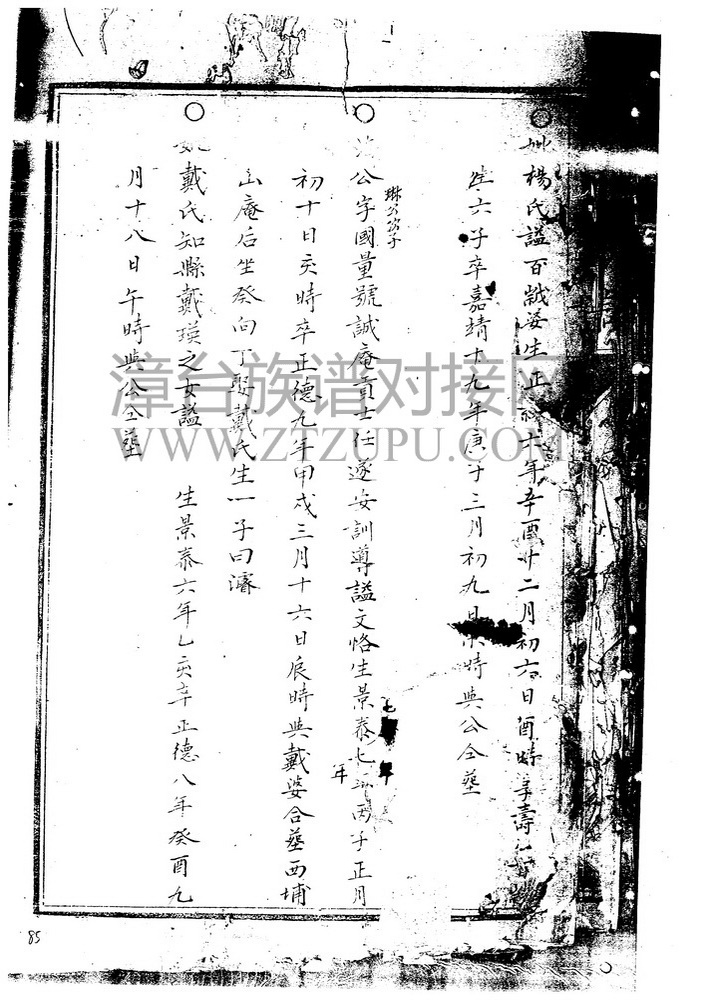 妣楊氏謚百誠姿生正統六年辛酉廿二月初六日酉時享壽
生六子卒嘉靖十九年庚子三月初九日時與公仝塟
琳公次子
公字國量號誠庵貢士任遂安訓導謚文恪生景泰七年丙子正月
七年
年
初十日亥時卒正德九年甲戌三月十六日辰時與戴婆合塟西埔
山庵后坐癸向丁娶戴氏生一子曰濬
戴氏知縣戴瑛之女謚 生景泰六年乙亥卒正德八年癸酉九
月十八日午時與公仝塟
漳台族谱对接网
WWW.ZTZUPU.COM
85